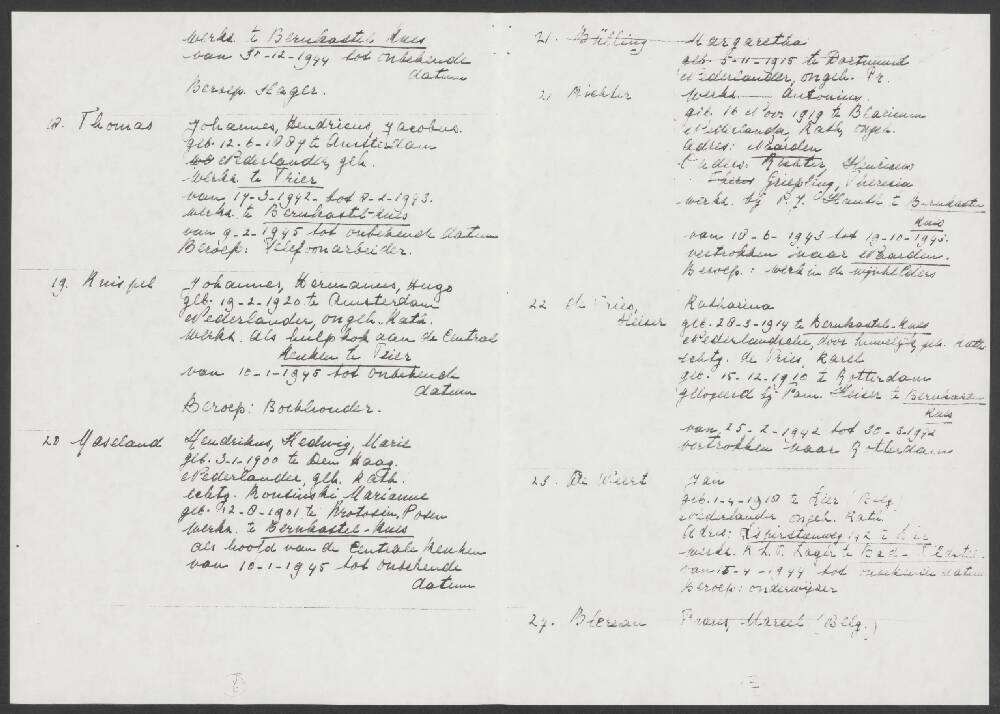 werkz. te Bernkastel Kues
van 30-12-1944 tot onbekende
datum
Beroep. Slager.
18. Thomas Johannes, Hendricus, Jacobus.
geb. 12-6-1889 te Amsterdam
Nederlander, geh.
werkz. te Trier
van 17-3-1942 - tot 8-2-1943.
werkz. te Bernkastel-Kues
van 9-2-1945 tot onbekende datum
Beroep: Telefoonarbeider.
19. Knispel Johannes, Hermanus, Hugo
geb. 19-2-1920 te Amsterdam
Nederlander, ongeh. Kath.
werkz. als hulpkok aan de Central
Keuken te Trier
van 10-1-1945 tot onbekende
datum
Beroep: Boekhouder.
20 Maseland Hendrikus, Hedwig, Marie
geb. 3-1-1900 te Den Haag.
Nederlander, geh. Kath.
echtg. Rousinski Marianne
geb. 12-8-1901 te Krotosin, Posen
werkz. te Bernkastel-Kues
als hoofd van de Centrale Keuken
van 10-1-1945 tot onbekende
datum
21. Bülling Margaretha
geb. 5-11-1915 te Dortmund
Nederlander, ongeh. Pr.
21 Richter werkz. Antonius
geb. 16 Nov 1919 te Blaricum
Nederlander, Kath, ongeh.
Adres: Naarden
Ouders: Richter, Henricus
Griepling, Theresia
werkz. bij P. J. Hauth te Bernkastel
Kues
van 18-6-1943 tot 19-10-1943.
vertrokken naar Naarden.
Beroep.: werk in de wijnkelders
22 de Vries, Katharina
Heiser geb. 28-3-1914 te Bernkastel-Kues
Nederlandsche, door huwelijk, geh. Kath.
echtg. de Vries, Karel
geb. 15-12-1910 te Rotterdam
gelogeerd bij Fam. Heiser te Bernkastel
Kues
van 25-2-1942 tot 30-3-1942
vertrokken naar Rotterdam
23. De Weert Jan
geb. 1-4-1918 te Lier (Belg.
Nederlander ongeh. Kath.
Adres: 192 te Lier
werkz. K.L.V. Lager te Bad-
van 15-4-1944 tot onbekende datum
Beroep: onderwijzer
24. Biersan Frans, Marcel (Belg.)